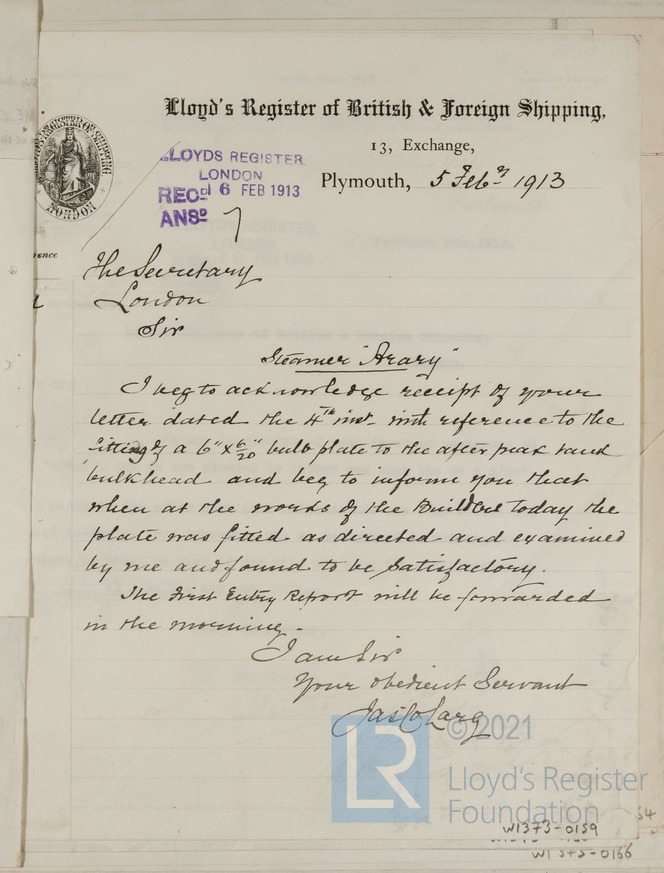 Lloyd's Register of British & Foreign Shipping,
13, Exchange,
Plymouth, 5 Feby 1913
LLOYDS REGISTER
LONDON
RECD 6 FEB 1913
ANSD
LONDON
The Secretary
London
Sir
Steamer "Arary"
I beg to acknowledge receipt of your
letter dated the 4th inst. with reference to the
fitting of a 6" x 6/20" bulb plate to the after peak tank
bulkhead and beg to inform you that
when at the works of the Builders today the
plate was fitted as directed and examined
by me and found to be satisfactory.
The First Entry Report will be forwarded
in the morning.
I am Sir
Your obedient Servant
© 2021
LR
Lloyd's Register
Foundation
W1373-0159